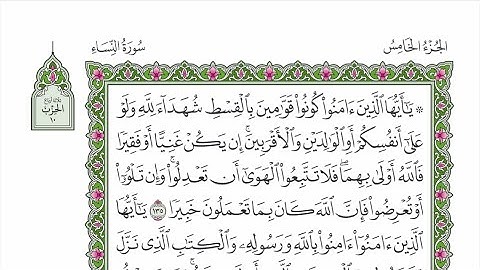 الجزء الخامس
سورة النساء
ثلاثة أرباع
الحزب
١٠
۞ يَٰٓأَيُّهَا ٱلَّذِينَ ءَامَنُواْ كُونُواْ قَوَّٰمِينَ بِٱلۡقِسۡطِ شُهَدَآءَ لِلَّهِ وَلَوۡ
عَلَىٰٓ أَنفُسِكُمۡ أَوِ ٱلۡوَٰلِدَيۡنِ وَٱلۡأَقۡرَبِينَۚ إِن يَكُنۡ غَنِيًّا أَوۡ فَقِيرٗا
فَٱللَّهُ أَوۡلَىٰ بِهِمَاۖ فَلَا تَتَّبِعُواْ ٱلۡهَوَىٰٓ أَن تَعۡدِلُواْۚ وَإِن تَلۡوُۥٓاْ
أَوۡ تُعۡرِضُواْ فَإِنَّ ٱللَّهَ كَانَ بِمَا تَعۡمَلُونَ خَبِيرٗا ١٣٥ يَٰٓأَيُّهَا
ٱلَّذِينَ ءَامَنُوٓاْ ءَامِنُواْ بِٱللَّهِ وَرَسُولِهِۦ وَٱلۡكِتَٰبِ ٱلَّذِي نَزَّلَ